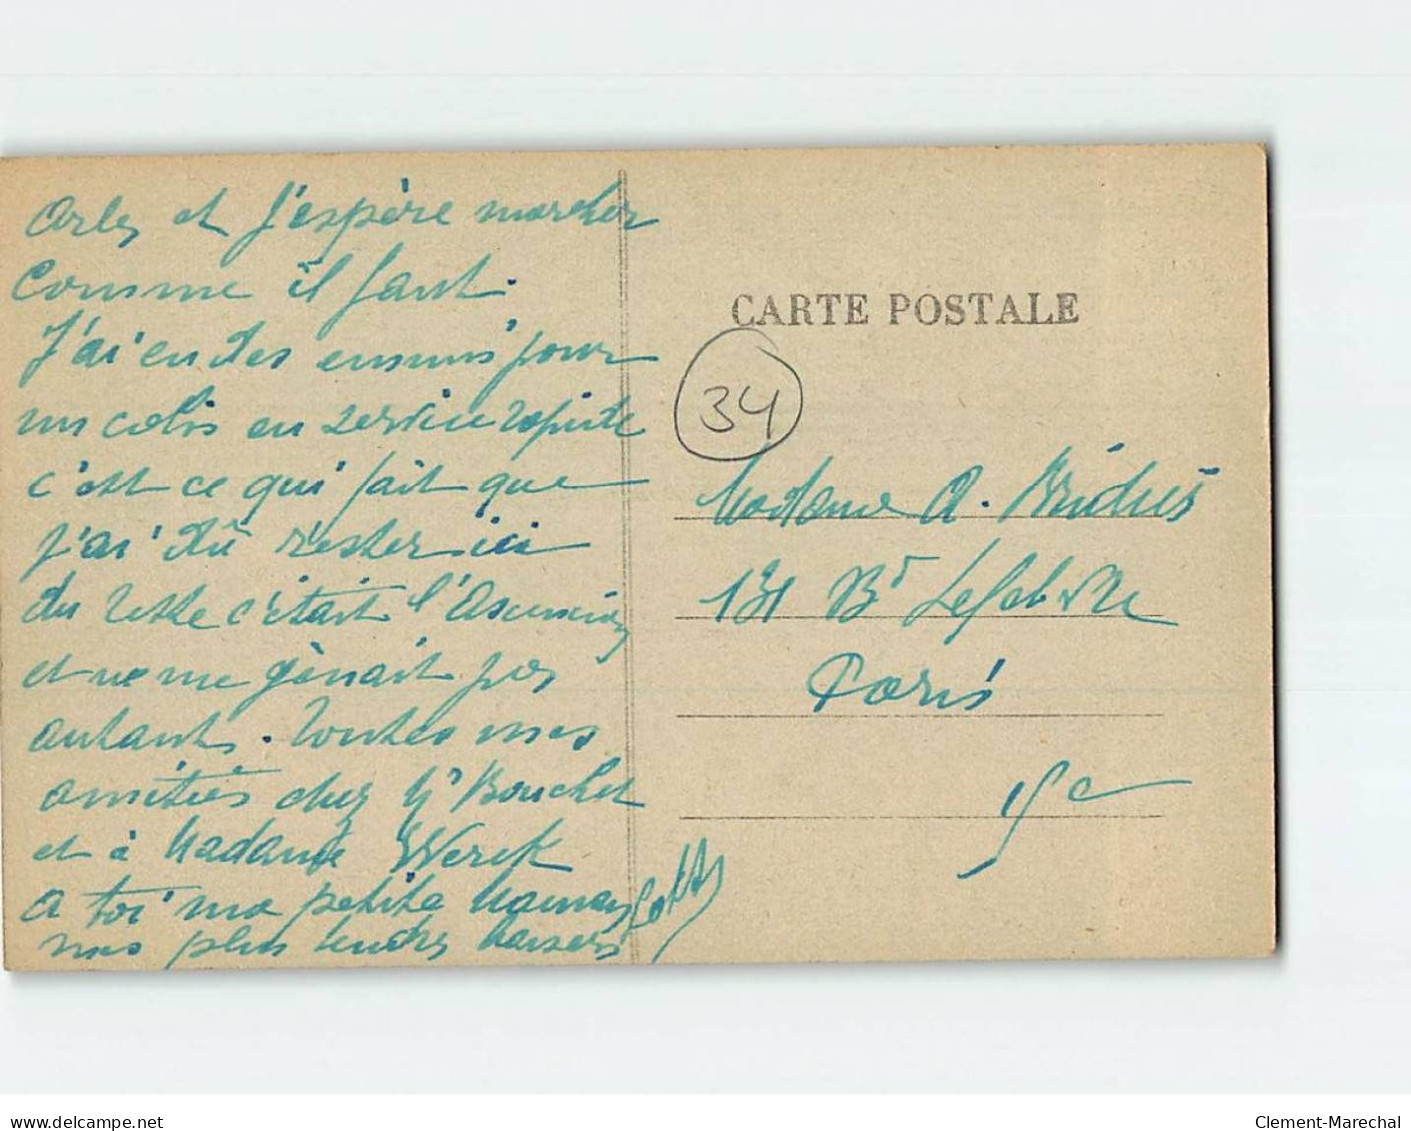 Arles et j'espère marcher
Comme il faut.
J'ai eu des ennuis pour
un colis en service rapide
c'est ce qui fait que
j'ai dû rester ici
du reste c'était l'Ascension
et ne me gênait pas
autant. Toutes mes
amitiés chez Mr Bouchet
et à Madame Werck
a toi ma petite Maman
mes plus tendres baisers
CARTE POSTALE
34
Madame A.
131 Bd Lefebvre
Paris
15e
delcampe.net
Clement-Marechal